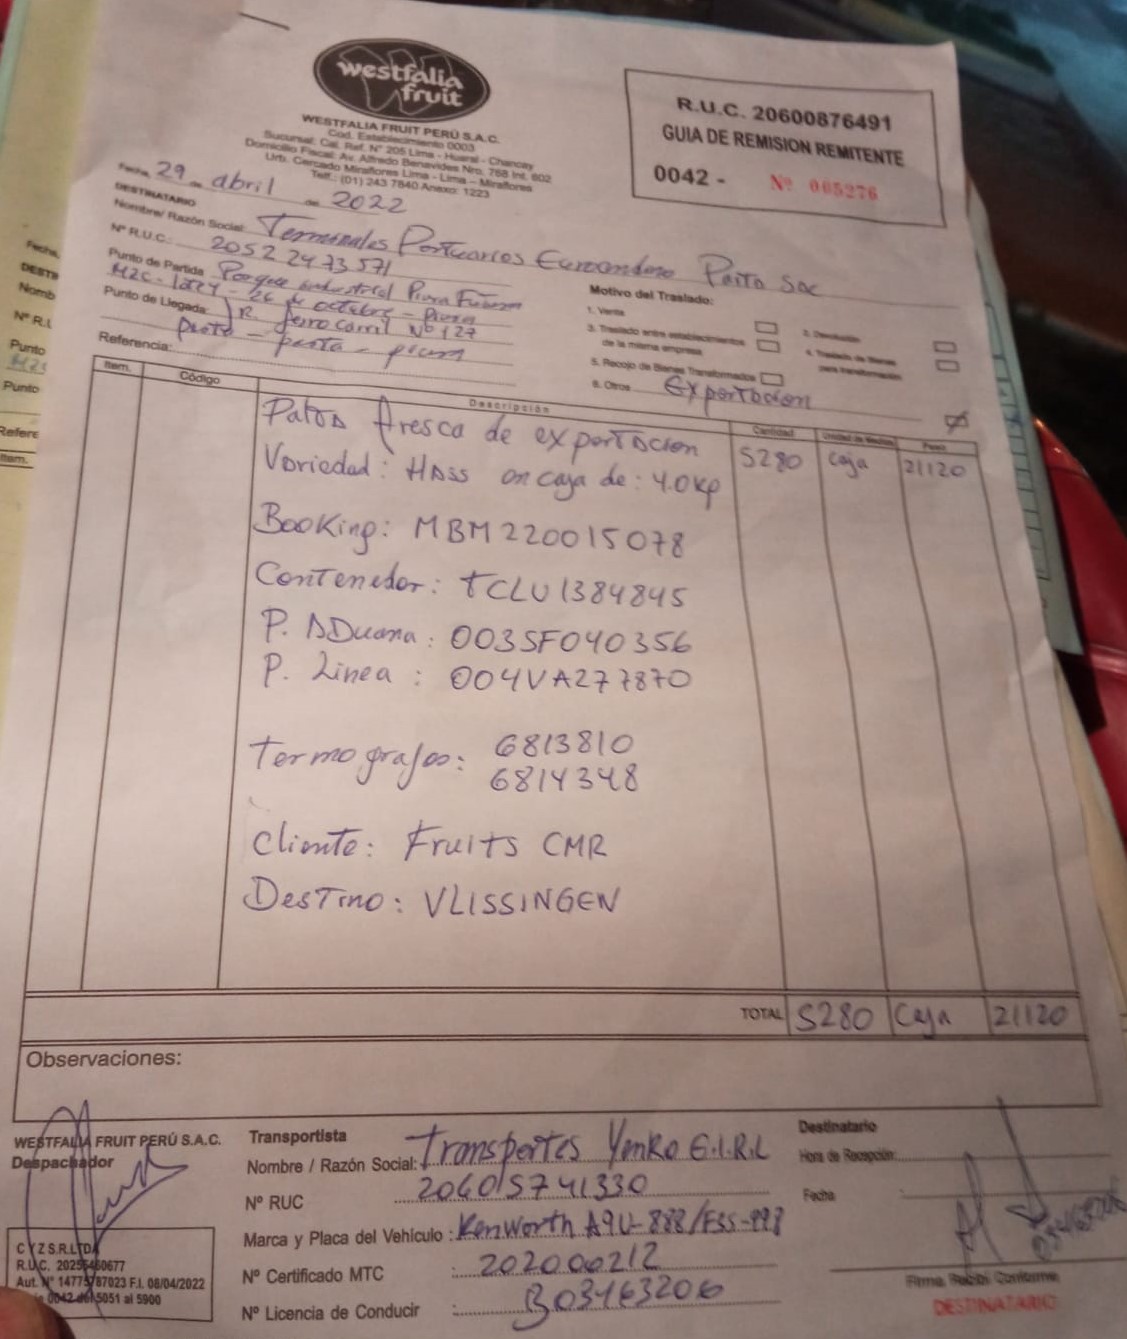 westfalia
fruit
WESTFALIA FRUIT PERÚ S.A.C.
Cod. Establecimiento 0003
Sucursal: Cal. Ref. N° 205 Lima - Huaral - Chancay
Domicilio Fiscal: Av. Alfredo Benavides Nro. 768 Int. 602
Urb. Cercado Miraflores Lima - Lima - Miraflores
Telf.: (01) 243 7840 Anexo: 1223
R.U.C. 20600876491
GUIA DE REMISION REMITENTE
0042 - Nº 005276
Fecha, 29 de abril de 2022
DESTINATARIO
Nombre/ Razón Social: Terminales Portuarios Euroandino Paita Sac
Nº R.U.C.: 20522473571
Punto de Partida Parque industrial Piura Futura
MZC - Lote 4 - 26 de octubre - Piura
Punto de Llegada: JR. ferrocarril Nº 127
paita - paita - piura
Referencia:
Motivo del Traslado:
1. Venta
2. Devolución
3. Traslado entre establecimientos
de la misma empresa
4. Traslado de Bienes
para transformación
5. Recojo de Bienes Transformados
6. Otros Exportacion
Item. Código Descripción Cantidad Unidad de Medida Peso
Palta fresca de exportacion 5280 Caja 21120
Variedad: HAss en caja de: 4.0kg
Booking: MBM220015078
Contenedor: TCLU1384845
P. ADuana: 003SF040356
P. Linea: 004VA277870
Termografos: 6813810
6814348
Cliente: Fruits CMR
Destino: VLISSINGEN
TOTAL 5280 Caja 21120
Observaciones:
WESTFALIA FRUIT PERÚ S.A.C.
Despachador
C Y Z S.R.LTDA
R.U.C. 20255460677
Aut. N° 14775787023 F.I. 08/04/2022
0042 del 5051 al 5900
Transportista
Nombre / Razón Social: Transportes Yenko E.I.R.L
Nº RUC 20605741330
Marca y Placa del Vehículo: Kenworth A9U-888/F3S-998
Nº Certificado MTC : 202000212
Nº Licencia de Conducir : B03463206
Destinatario
Hora de Recepción:
Fecha
Firma, Recibí Conforme
DESTINATARIO